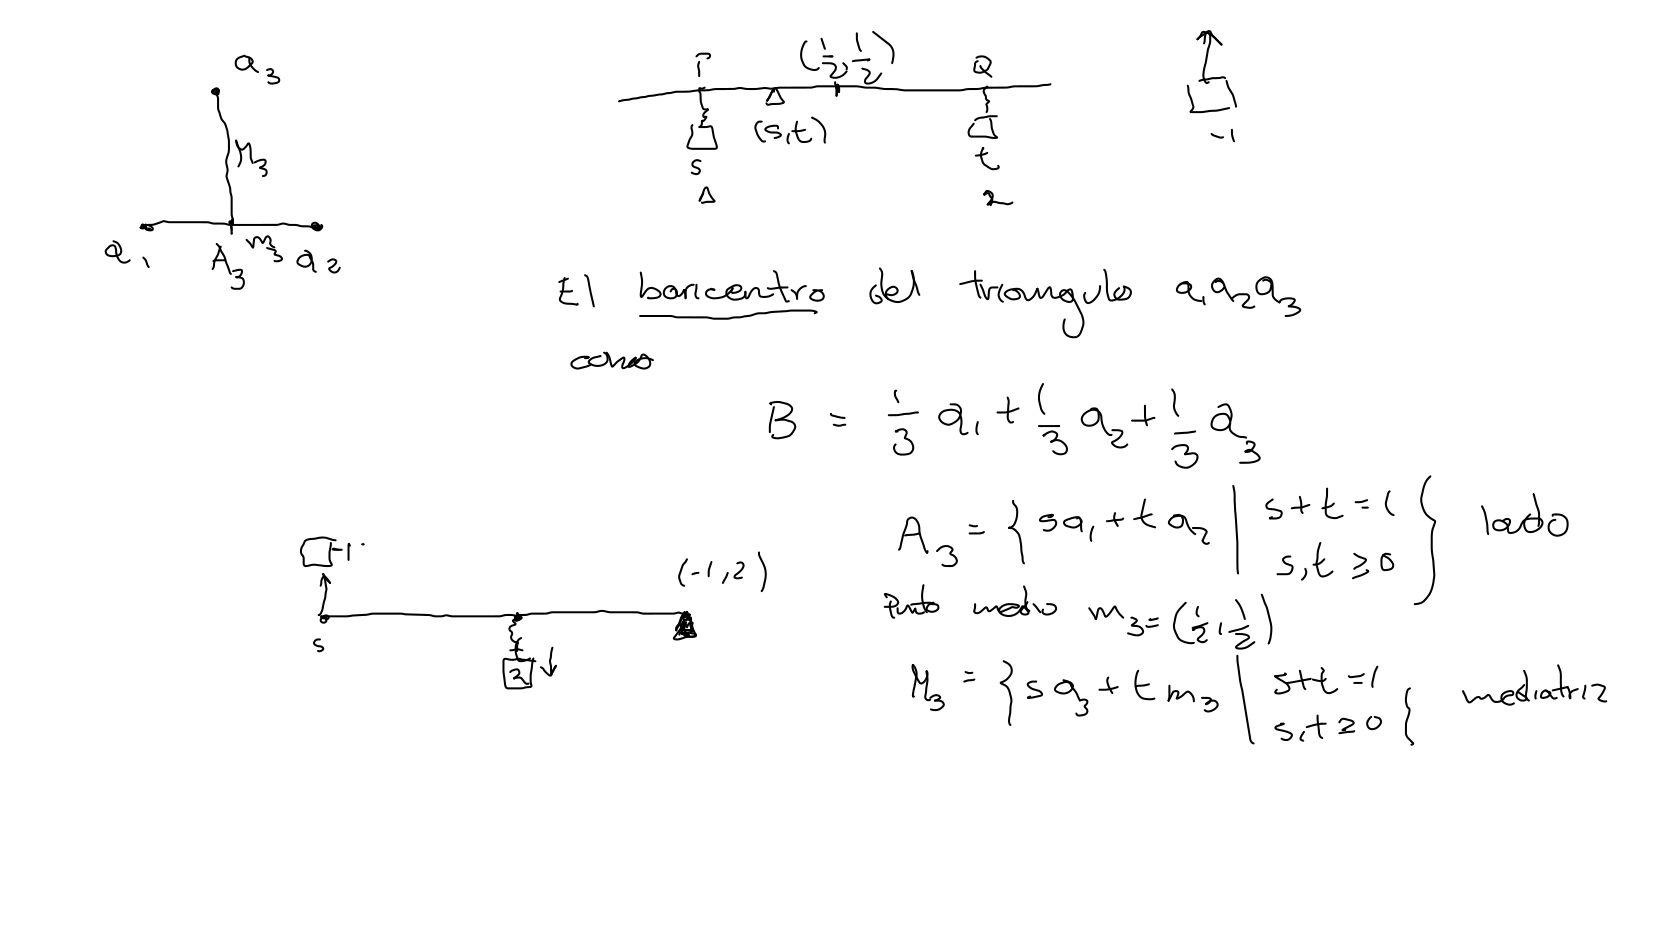 a₃
M₃
a₁ A₃ m₃ a₂
P (1/2, 1/2) Q
s (s,t) t
2
-1
El baricentro del triangulo a₁a₂a₃
como
B = 1/3 a₁ + 1/3 a₂ + 1/3 a₃
A₃ = { sa₁ + t a₂ | s+t=1 s,t ≥ 0 } lado
Punto medio m₃ = (1/2, 1/2)
M₃ = { s a₃ + t m₃ | s+t=1 s,t ≥ 0 } mediatriz
-1
(-1,2)
s
t
2